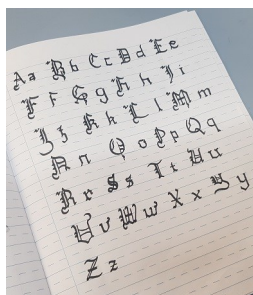 Aa Bb Cc Dd Ee
Ff Gg Hh Ii
Jj Kk Ll Mm
Nn Oo Pp Qq
Rr Ss Tt Uu
Vv Ww Xx Yy
Zz